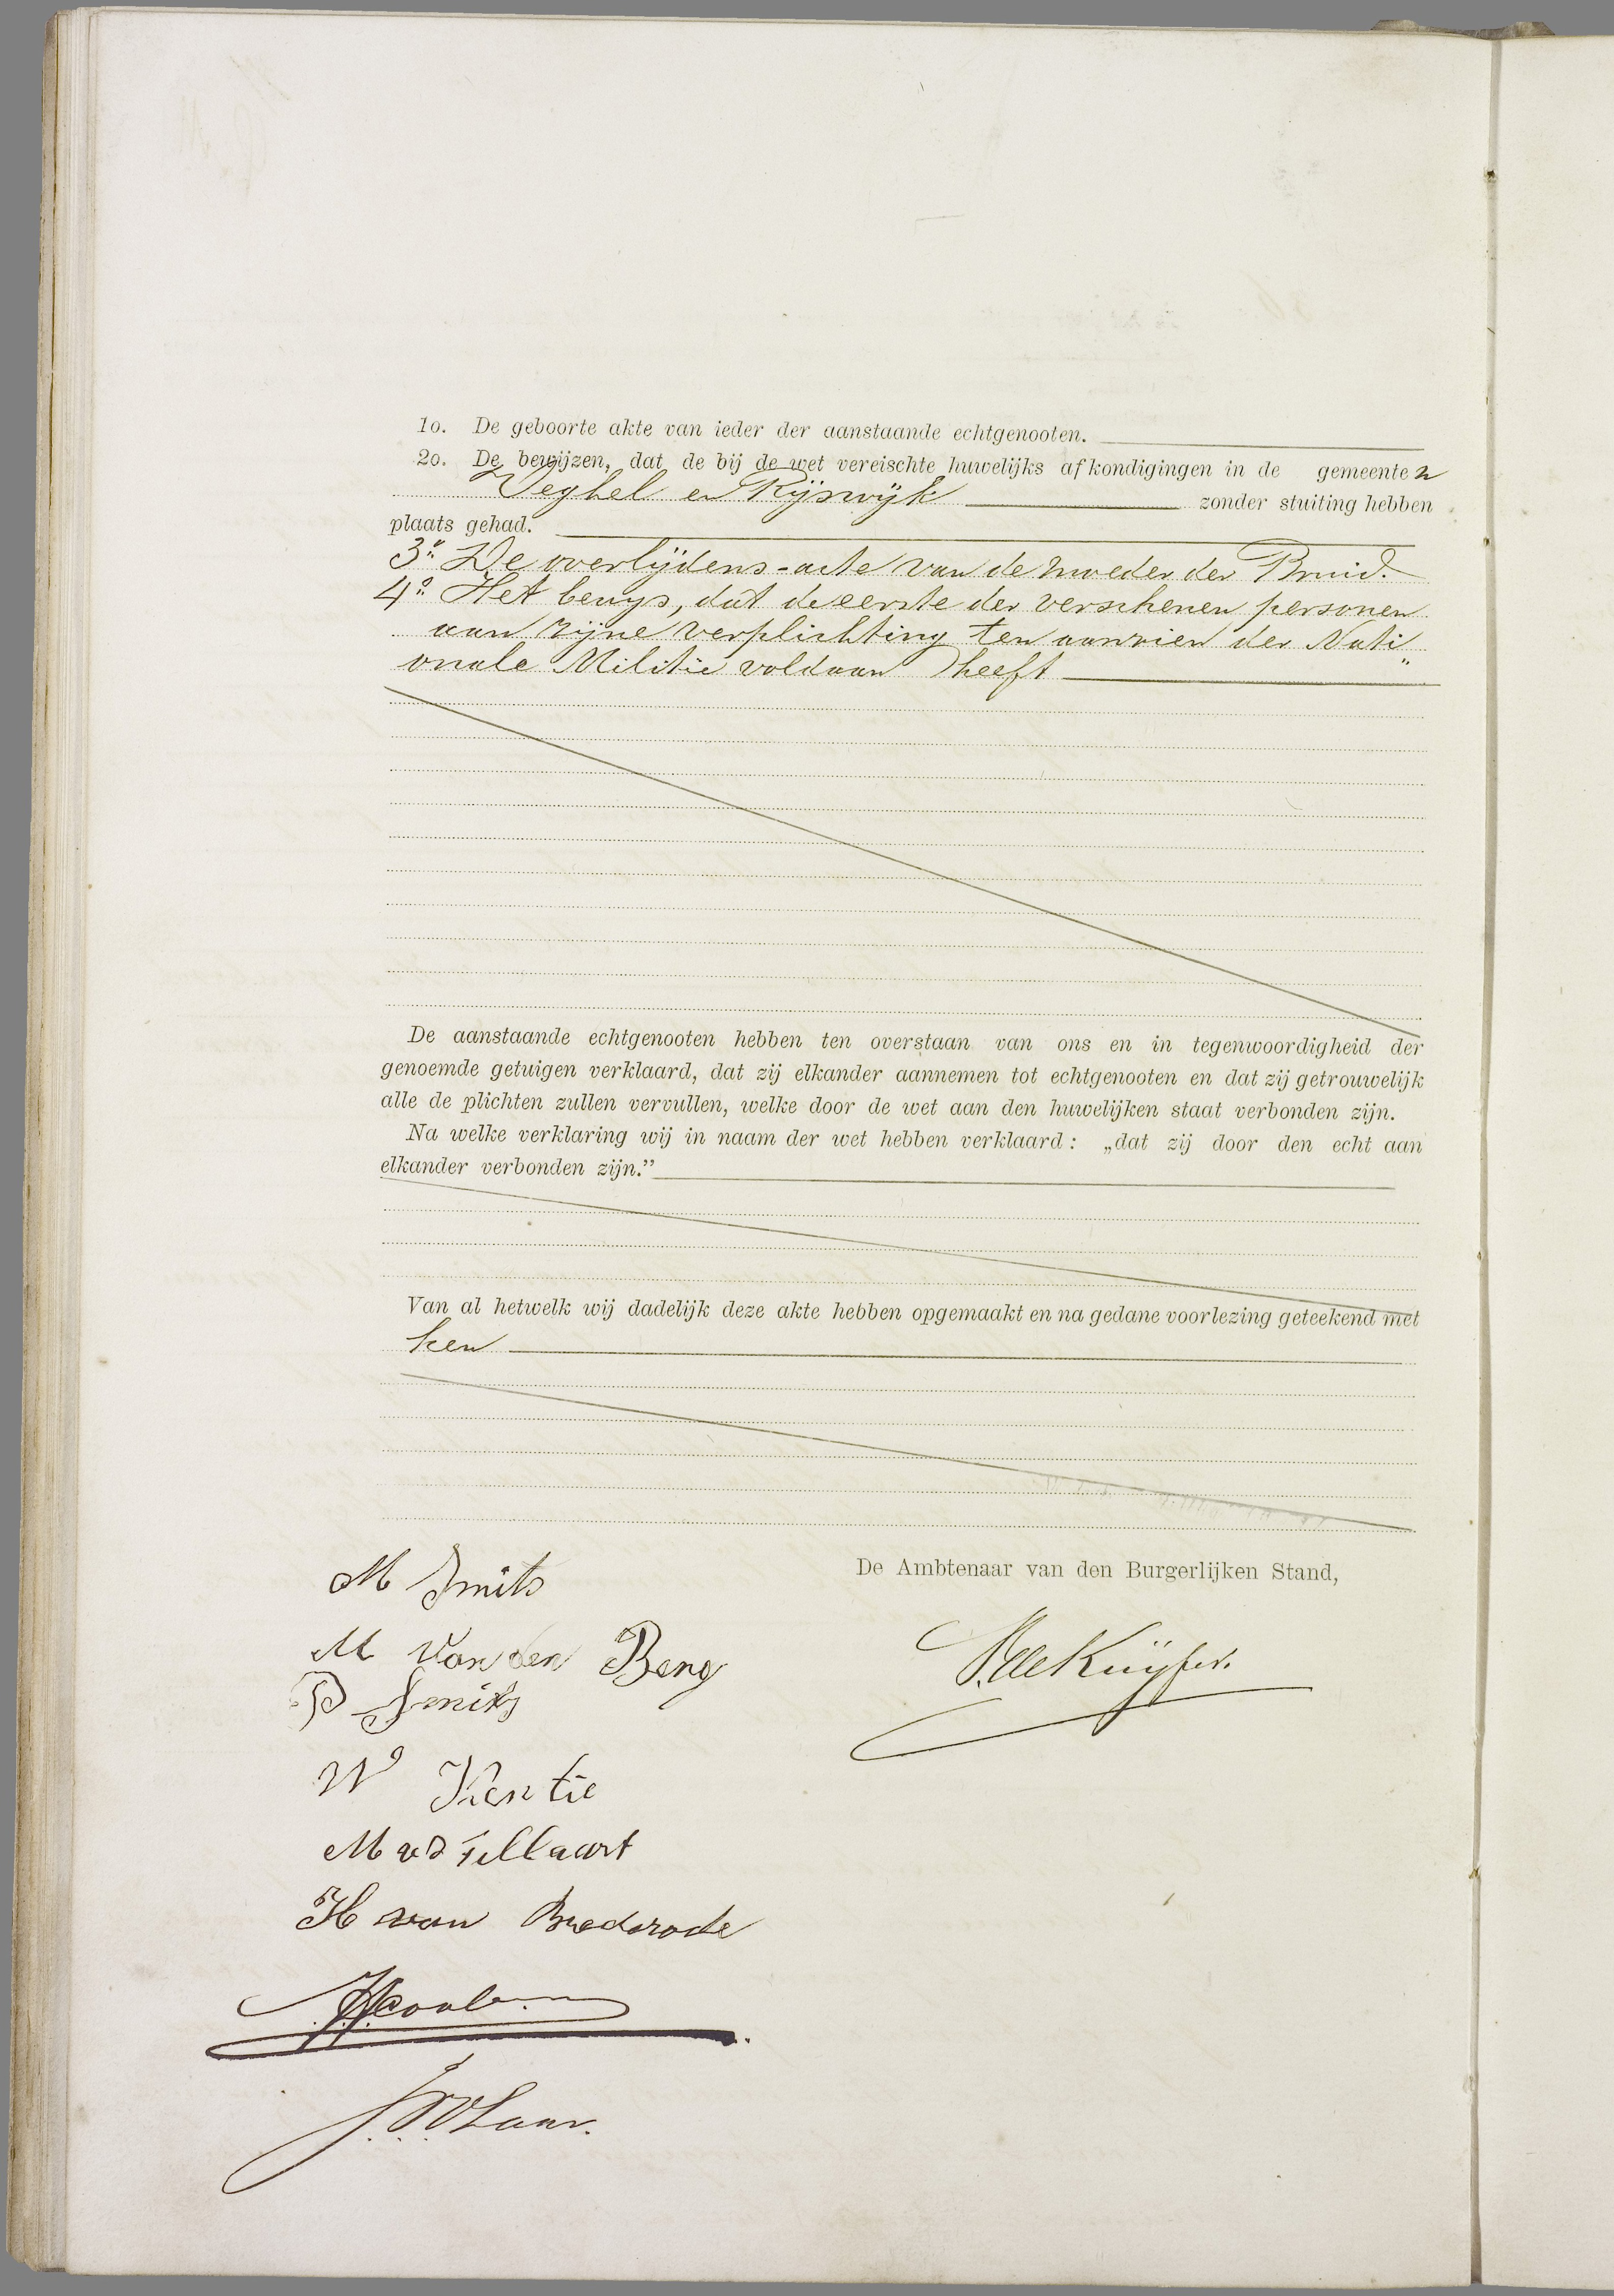 1o. De geboorte akte van ieder der aanstaande echtgenooten.
2o. De bewijzen, dat de bij de wet vereischte huwelijks afkondigingen in de gemeenten
Veghel en Rijswijk zonder stuiting hebben
plaats gehad.
3o. De overlijdens-acte van de moeder der Bruid.
4o. Het bewijs, dat de eerste der verschenen personen
aan zijne verplichting ten aanzien der Nati
onale Militie voldaan heeft
De aanstaande echtgenooten hebben ten overstaan van ons en in tegenwoordigheid der
genoemde getuigen verklaard, dat zij elkander aannemen tot echtgenooten en dat zij getrouwelijk
alle de plichten zullen vervullen, welke door de wet aan den huwelijken staat verbonden zijn.
Na welke verklaring wij in naam der wet hebben verklaard: „dat zij door den echt aan
elkander verbonden zijn.”
Van al hetwelk wij dadelijk deze akte hebben opgemaakt en na gedane voorlezing geteekend met
hen
De Ambtenaar van den Burgerlijken Stand,
M Smits
M van den Berg
P Smits
W Kentie
M vd Tillaart
H van Brederode
de Kuijper.